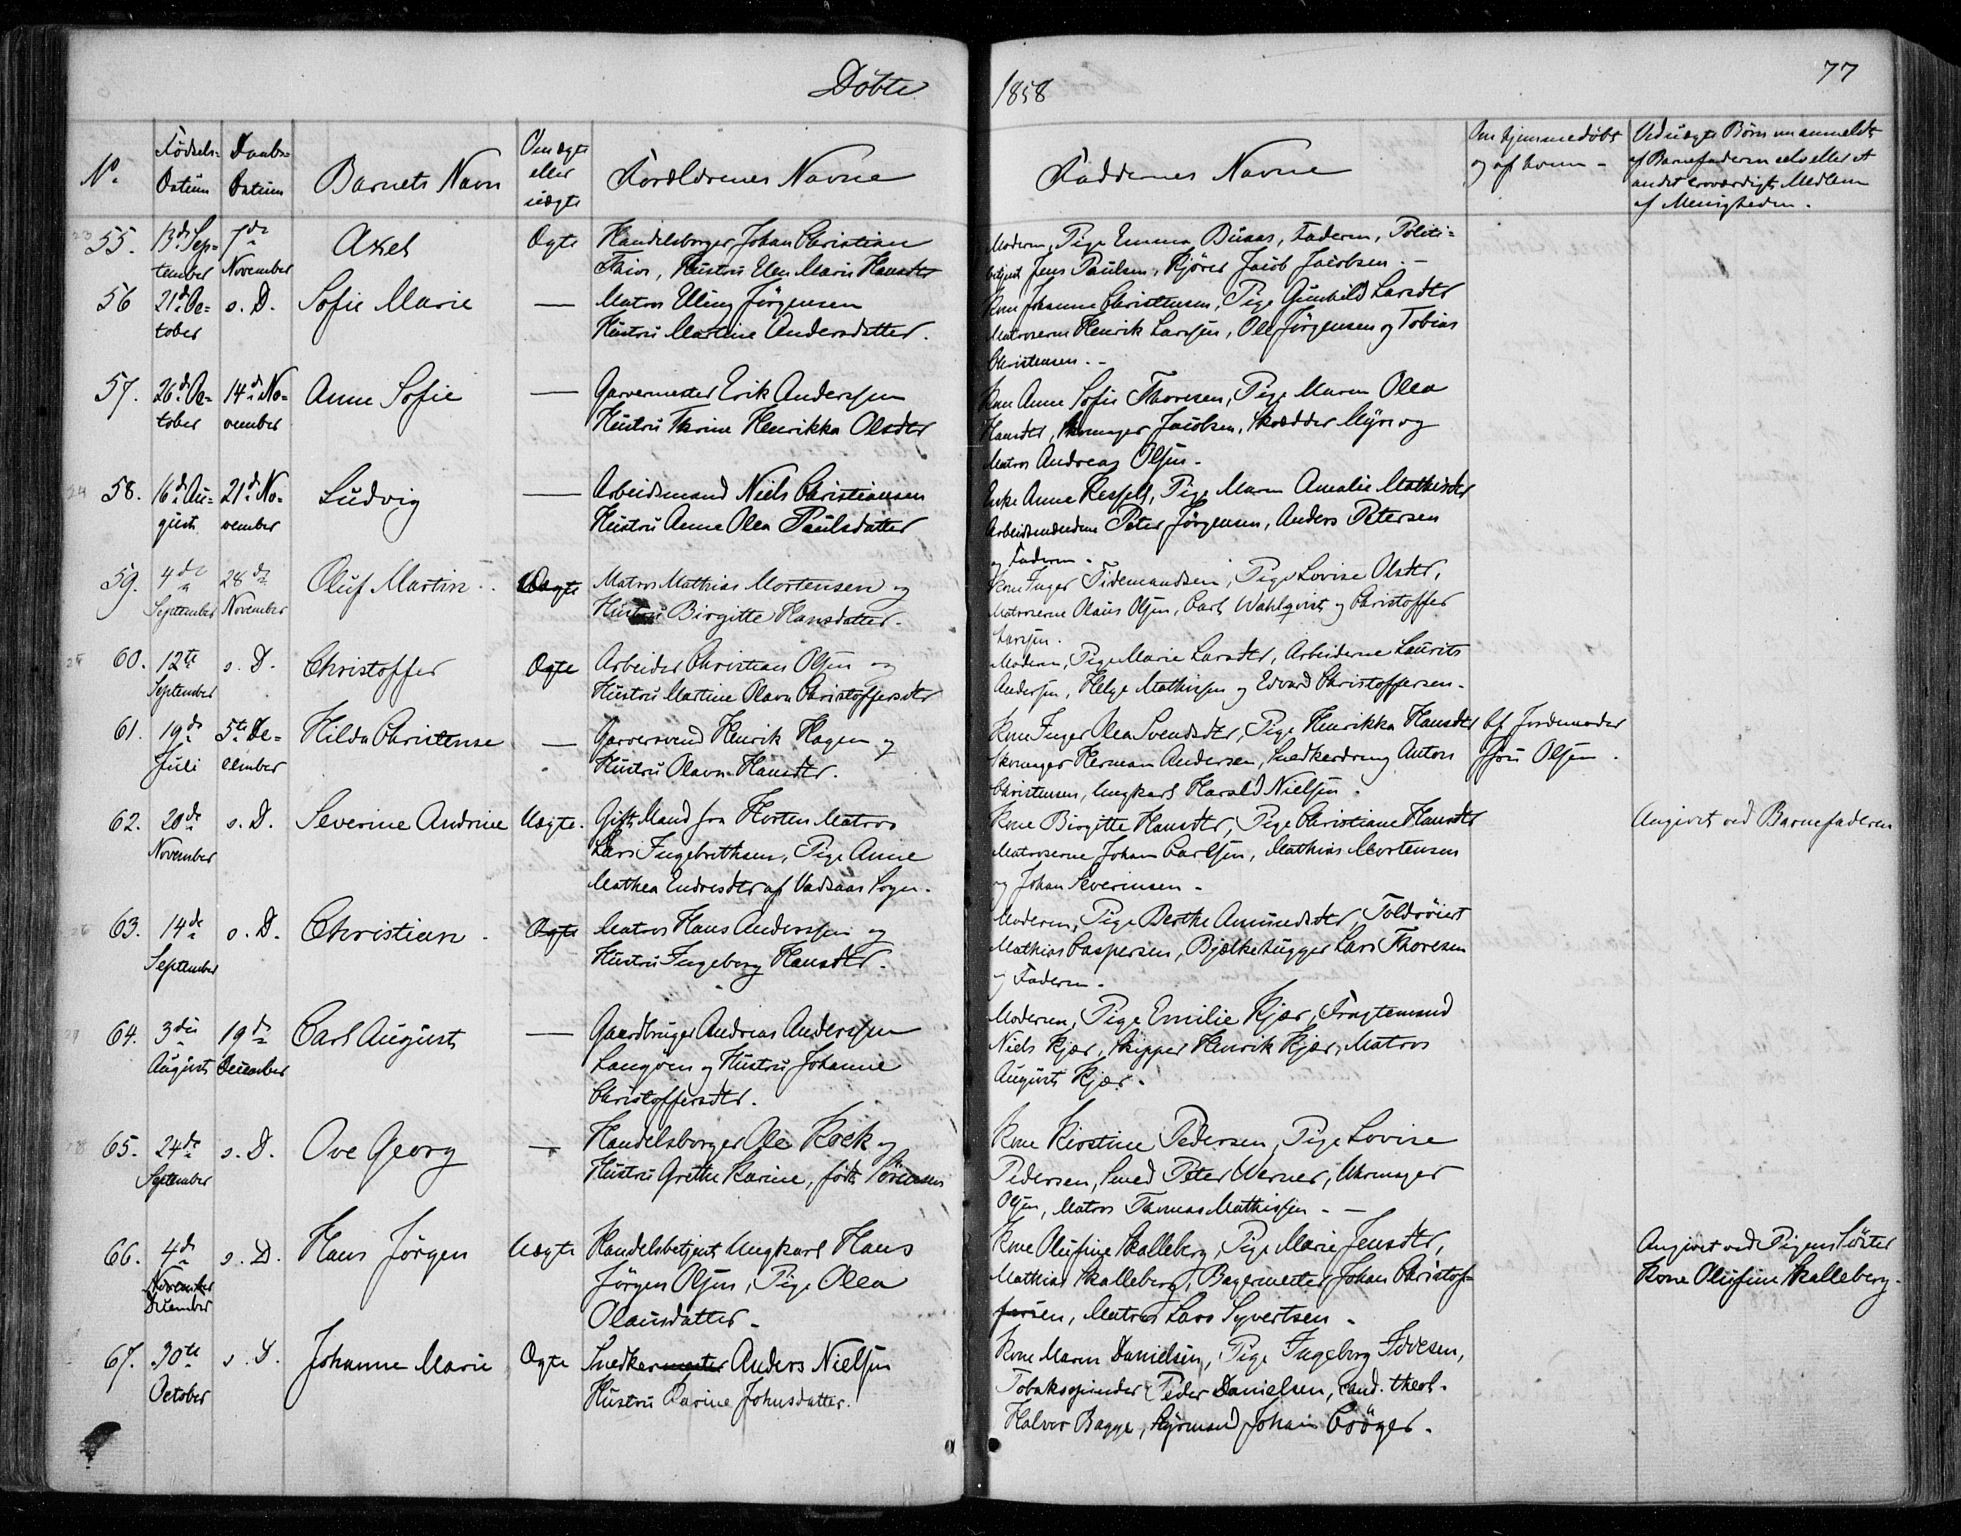 Döbte 1858 77
No. Födsels-Datum Daabs-Datum Barnets Navn Om ægte eller uægte Forældrenes Navne Faddernes Navne Om hjemmedöbt og af hvem - Ved uægte Börn om anmeldt af Barnefaderen selv eller et andet troværdigt Medlem af Menigheden.
55. 13de Sep- 7de Axel Ægte Handelsborger Johan Christian Moderen, Pige Emma Buaas, Faderen, Politi=
tember November Hustru Ellen Marie Hansdtr betjent Jens Paulsen, Kjörer Jacob Jacobsen. -
56 21de Oc- s. D. Sofie Marie — Matros Elling Jörgensen Kone Johanne Christensen, Pige Gunhild Larsdtr
tober Hustru Martine Andersdatter. Matroserne Henrik Larssen, Ole Jörgensen og Tobias
Christensen. -
57. 26de Oc- 14de No- Anne Sofie — Garvermester Erik Anderssen Kone Anne Sofie Thoresen, Pige Maren Olea
tober vember Hustru Trine Henrikka Olsdtr Hansdtr, Skomager Jacobsen, Skrædder Myre og
Matros Andreas Olsen -
58. 16de Au- 21de No- Ludvig — Arbeidsmand Niels Christiansen Enke Anne Kessell, Pige Maren Amalie Mathisdtr
gust vember Hustru Anne Olea Paulsdatter Arbeidsmændene Peter Jörgensen, Anders Petersen
og Faderen -
59. 4de 28de Oluf Martin. Uægte Matros Mathias Mortensen og Kone Inger Tidemandsen, Pige Lovise Olsdtr,
September November Hustru Birgitte Hansdatter. Matroserne Olaus Olsen, Carl Wahlqvist og Christoffer
Larssen.
60. 12te s. D. Christoffer Ægte Arbeider Christian Olsen og Moderen, Pige Marie Larsdtr, Arbeiderne Laurits
September Hustru Martine Olava Christoffersdtr Andersen, Helge Mathissen og Edvard Christoffersen.
61. 19de 5te De- Hilda Christense — Garversvend Henrik Hagen og Kone Inger Olea Svendsdtr, Pige Henrikka Hansdtr Af Jordemoder
Juli cember Hustru Olava Hansdtr. Skomager Herman Andersen, Snedkerdreng Anton Olsen.
Christensen, Ungkarl Harald Nielsen.
62. 20de s. D. Severine Andrine Uægte. Gift Mand fra Horten Matros Kone Birgitte Hansdtr, Pige Christiane Hansdtr Angivet ved Barnefaderen
November Lars Ingebrethsen, Pige Anne Matroserne Johan Carlsen, Mathias Mortensen
Mathea Endresdtr af Vadsaas Sogn. og Johan Severinsen -
63. 14de s. D. Christian. Ægte Matros Hans Anderssen og Moderen, Pige Berthe Amundsdtr, Toldröiert
September Hustru Ingeborg Hansdtr. Mathias Caspersen, Bjælkehugger Lars Thoresen
og Faderen.
64. 3die 19de Carl August — Gaardbruger Andreas Anderssen Moderen, Pige Emilie Kjær, Fragtemand
August December Langöen og Hustru Johanne Niels Kjær, Skipper Henrik Kjær, Matros
Christoffersdtr. August Kjær.
65. 24de s. D. Ove Georg — Handelsborger Ole Kock og Kone Kirstine Pedersen, Pige Lovise
September Hustru Grethe Karine, föd Sörensen Pedersen, Smed Peter Werner, Uhrmager
Olsen, Matros Thomas Mathissen - —
66. 4de s. D. Hans Jörgen Uægte Handelsbetjent Ungkarl Hans Kone Olufine Skalleberg, Pige Marie Jensdtr, Angivet ved Pigens Söster
November Jörgen Olsen, Pige Olea Mathias Skalleberg, Bagermester Johan Christof- Kone Olufine Skalleberg.
December Olausdatter - fersen, Matros Lars Syvertsen -
67. 30te s. D. Johanne Marie Ægte Snedkermester Anders Nielsen Kone Maren Danielsen, Pige Ingeborg Iversen,
October Hustru Karine Johnsdatter. Tobaksspinder Peder Danielsen, cand. theol.
Halvor Bagge, Styrmand Johan Cröger.